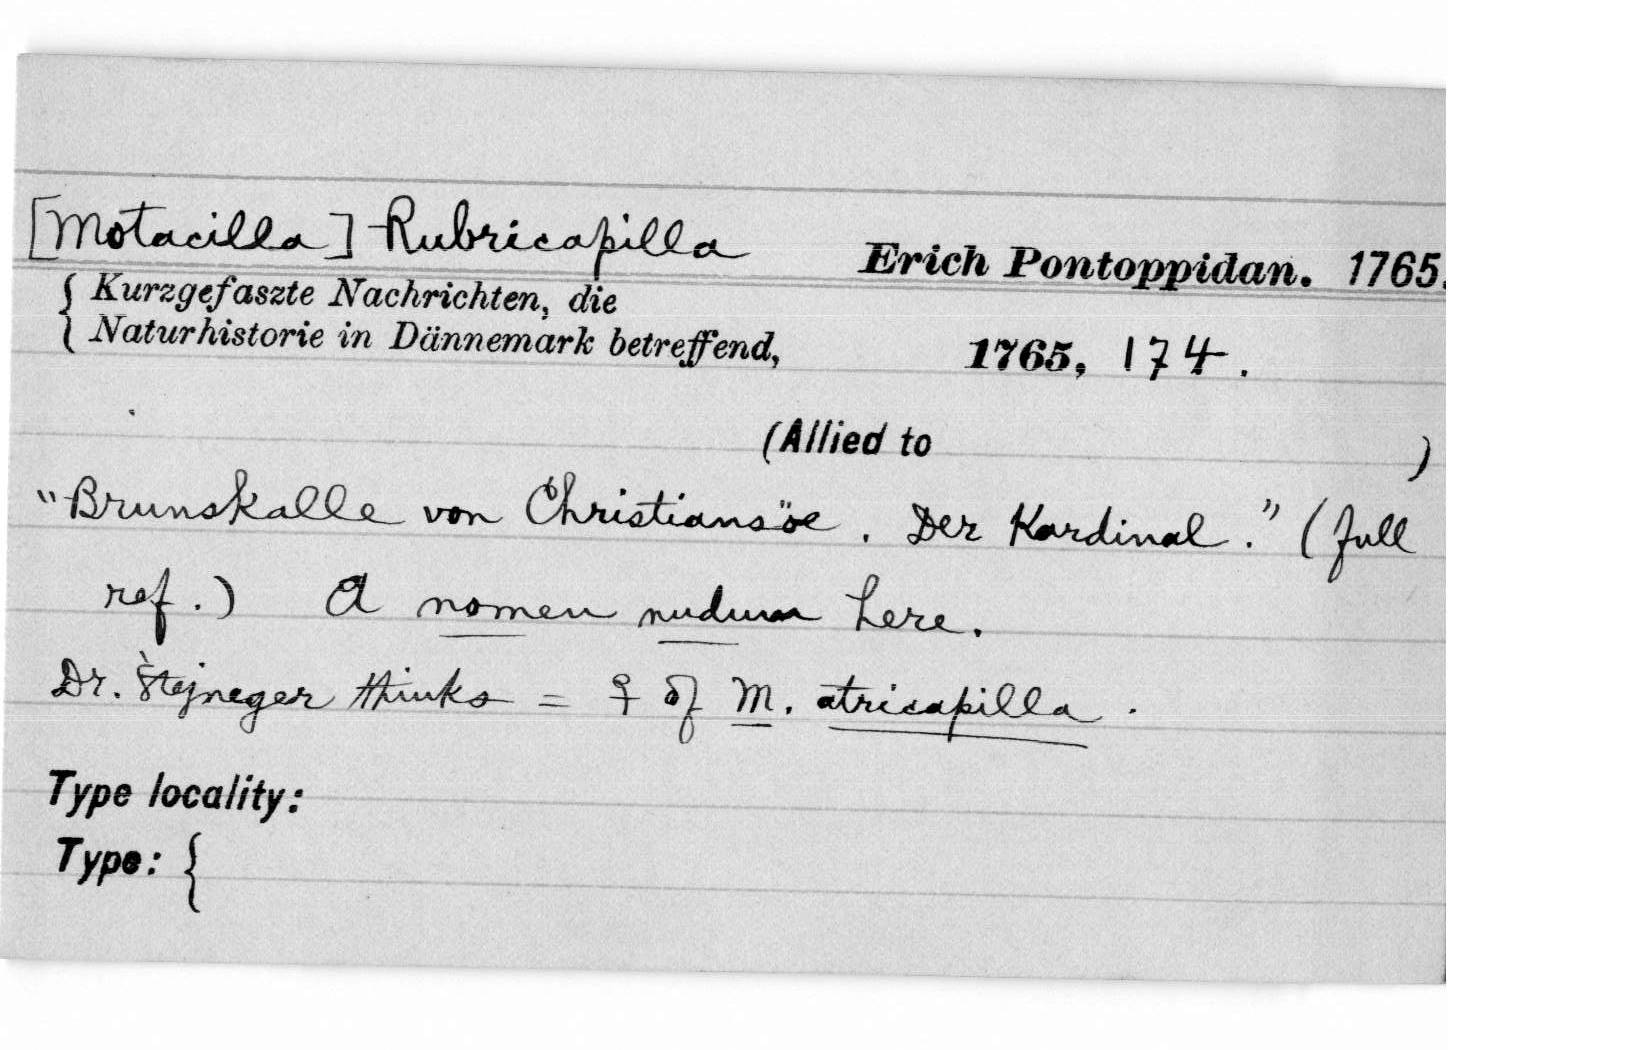 [Motacilla] Rubricapilla Erich Pontoppidan. 1765.
{ Kurzgefaszte Nachrichten, die
Naturhistorie in Dännemark betreffend, 1765, 174.
(Allied to )
"Brunskalle von Christiansöe. Der Kardinal." (full
ref.) A nomen nudum here.
Dr. Stejneger thinks = ♀ of M. atricapilla.
Type locality:
Type: {